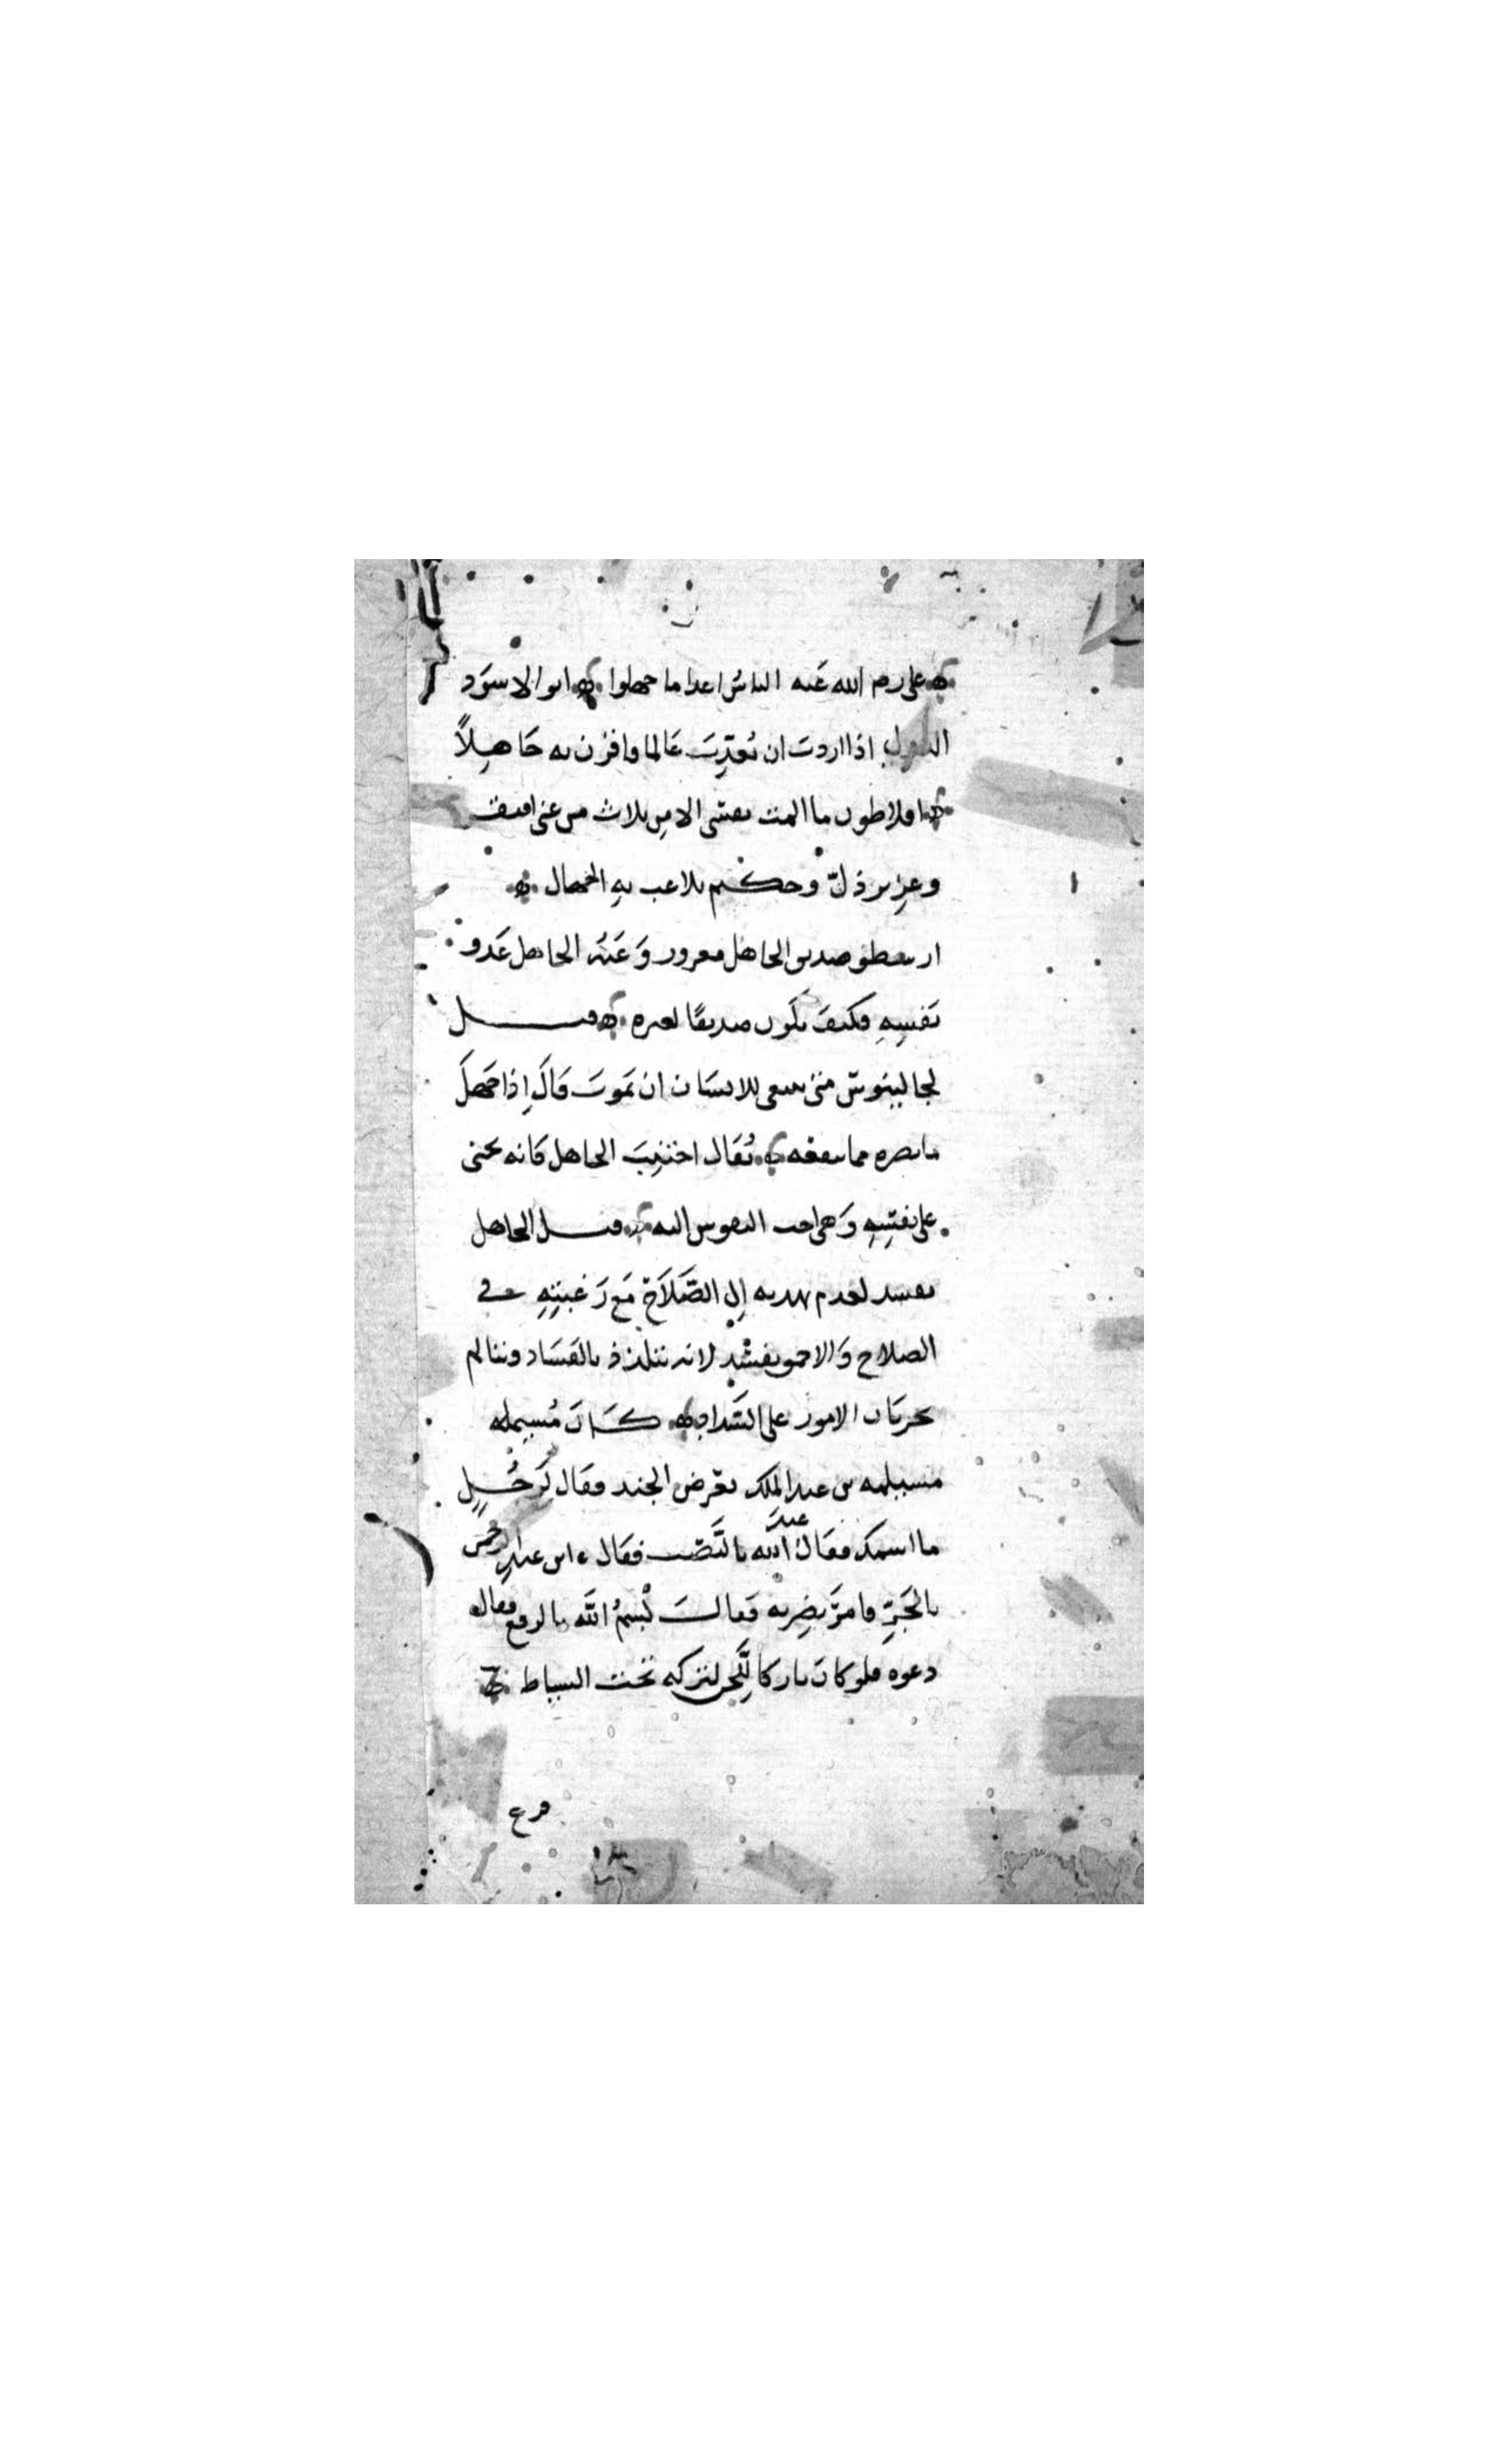 على رضى الله عنه الناس اعداء ما جهلوا ابو الاسود
الدولى اذا اردت ان تعذب عالما فاقرن به جاهلاً
افلاطون ما المت نفسى الا من ثلاث من غنى افتقر
وعزيز ذلّ وحكيم تلاعب به الجهال
ارسطو صديق الجاهل مغرور وعنه الجاهل عدو
نفسه فكيف يكون صديقًا لغيره قيل
لجالينوس متى ينبغى للانسان ان يموت قال إذا جهل
ما يضره مما ينفعه يُقال اجتنب الجاهل فانه يجنى
على نفسه وهى احب النفوس اليه قيل الجاهل
يفسد لعدم تهديه إلى الصلاح مع رغبته فى
الصلاح والاحمق يفسد لانه يتلذذ بالفساد ويتالم
بجريان الامور على السداد كان مسيلمه
مسيلمه بن عبد الملك يعرض الجند فقال لرجلٍ
ما اسمك فقال عبدَ الله بالنصب فقال ابن عبدِ الرحمن
بالجرّ فامر بضربه فقال بسمُ الله بالرفع فقال
دعوه فلو كان تاركا للّحن لتركه تحت السياط